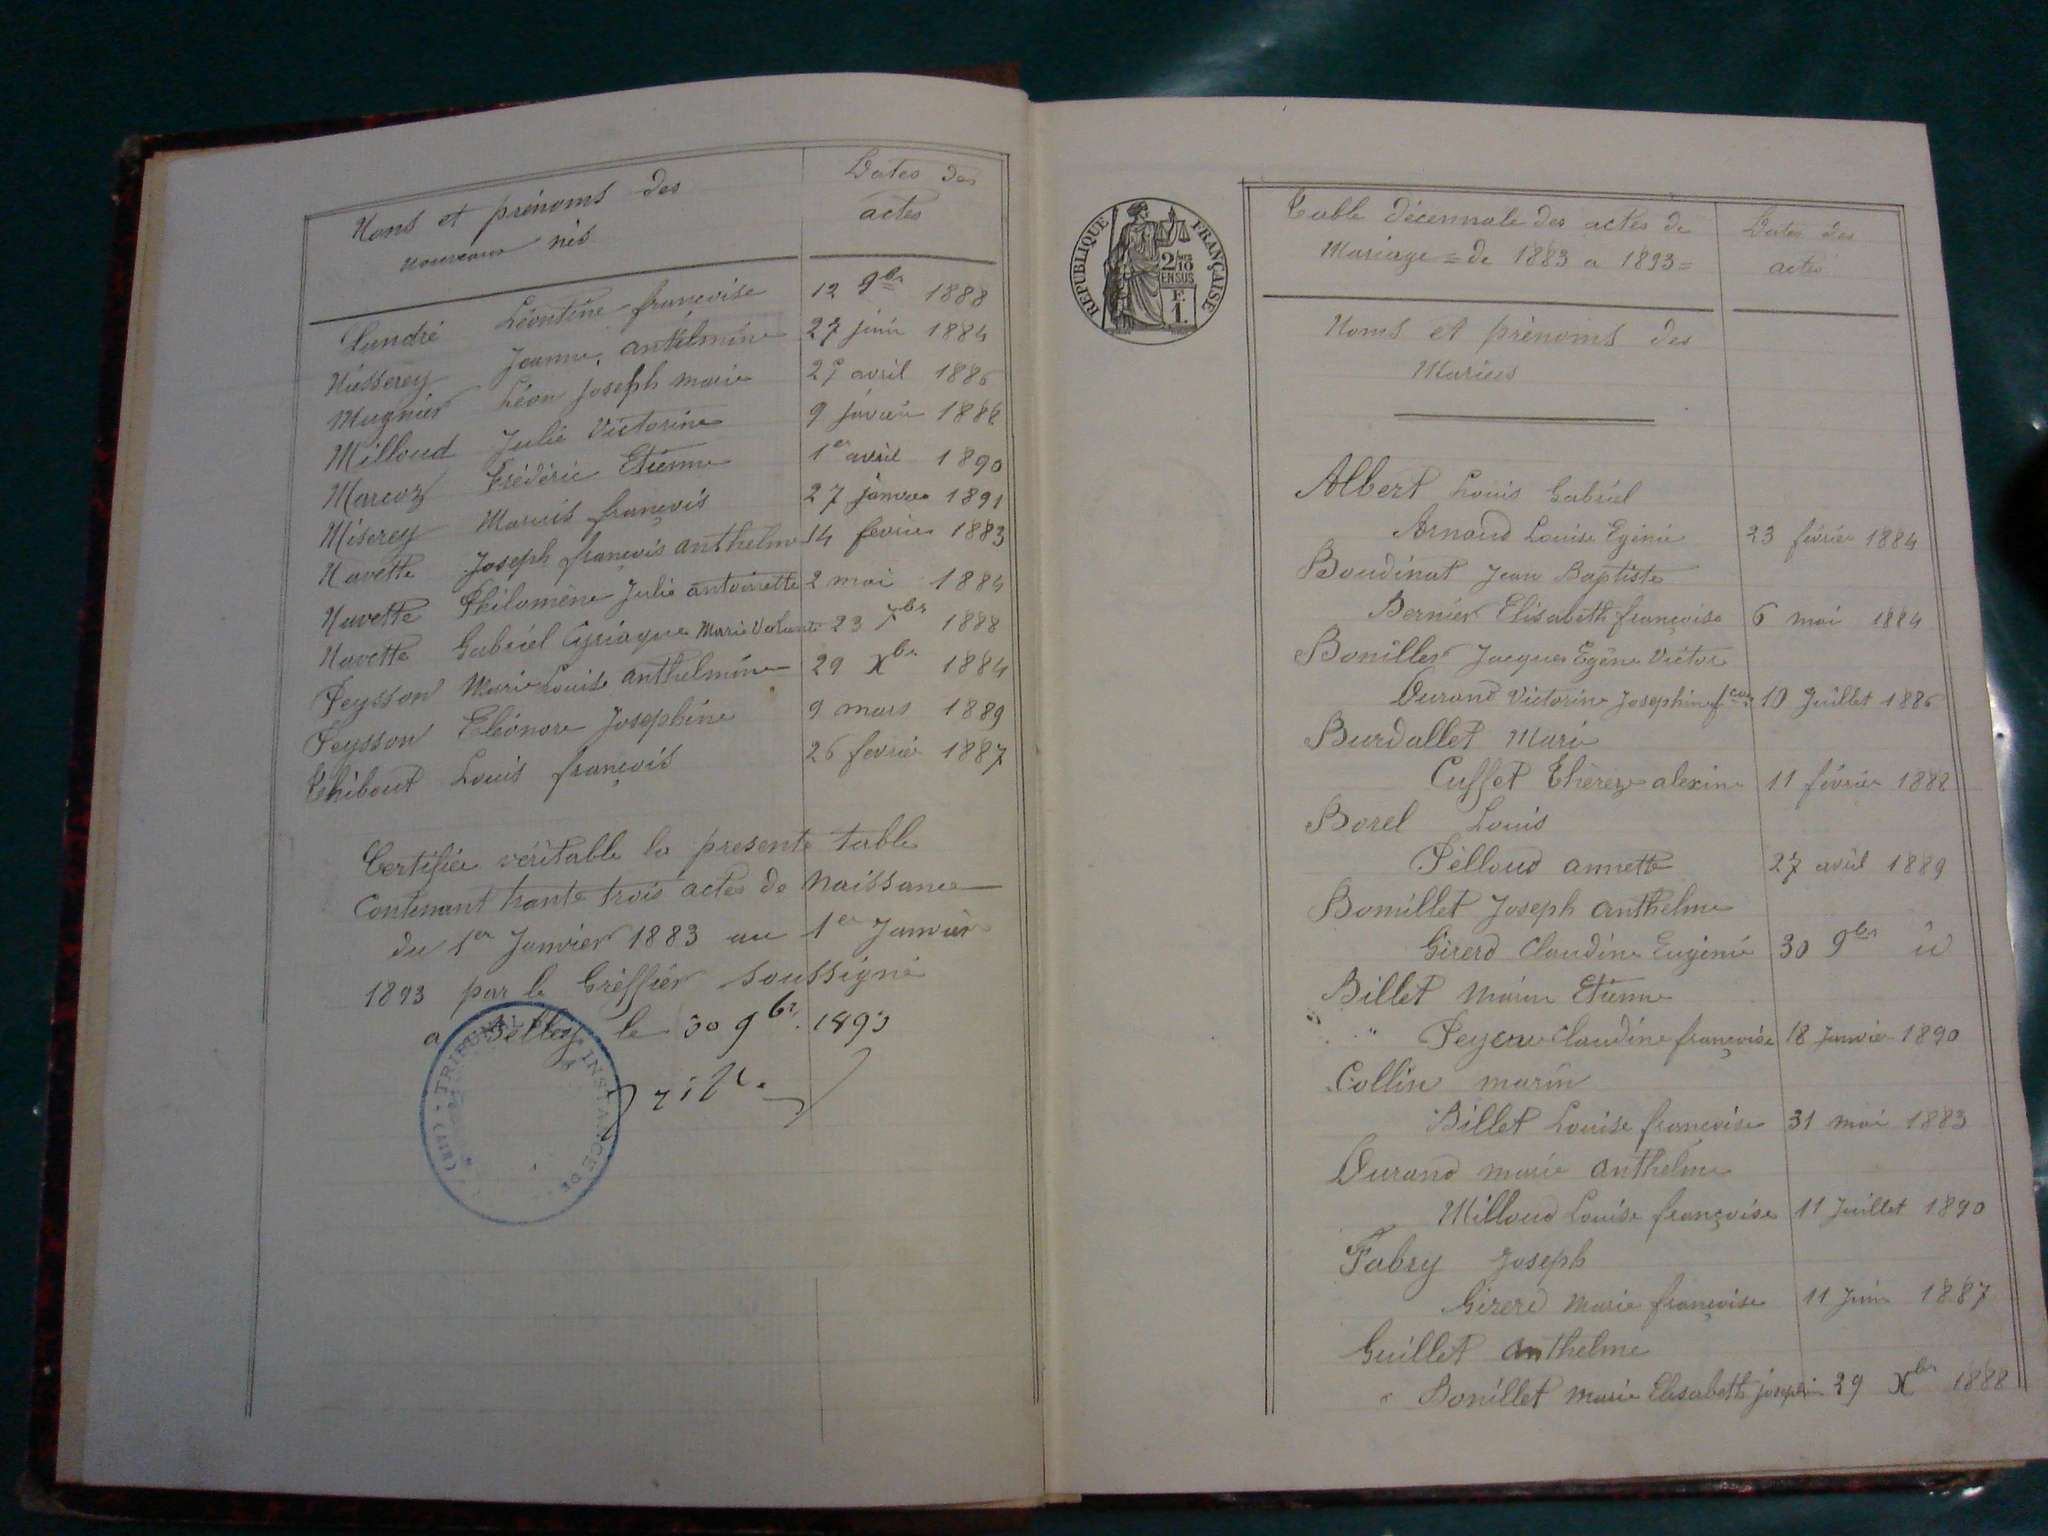 Noms et prénoms des
nouveaux nés
Dates des
actes
Landré Léontine françoise 12 9bre 1888
Misserey Jeanne, anthelmine 27 juin 1884
Mugnier Léon joseph marie 27 avril 1886
Milloud Julie Victorine 9 1886
Marcoz Frédéric Etienne 1er avril 1890
Miserey Marius françois 27 janvier 1891
Navette Joseph françois anthelme 14 fevrier 1883
Navette Philomène Julie antoinette 2 mai 1884
Navette Gabriel Cyriaque Marie 23 1888
Peysson Marie Louise anthelmine 29 Xbr 1884
Peysson Eléonore Josephine 9 mars 1889
Thibout Louis françois 26 fevrier 1887
Certifiée véritable la presente table
Contenant trante trois actes de Naissance
du 1er Janvier 1883 au 1er Janvier
1893 par le Greffier soussigné
a Belley le 30 9br 1893
TRIBUNAL INSTANCE DE
REPUBLIQUE FRANÇAISE
2/10
EN SUS
F.
1.
Table décennale des actes de
Mariage = de 1883 a 1893 =
Dates des
actes
Noms et prénoms des
Mariés
Albert Louis Gabriel
Arnaud Louise Egénie 23 février 1884
Boudinat Jean Baptiste
Bernier Elisabeth françoise 6 mai 1884
Bonillet Jacques Egène Victor
Durand Victorine Josephine fcoise 10 Juillet 1886
Burdallet Marie
Cuffet Thèreze alexine 11 février 1888
Borel Louis
Pélloud annette 27 avril 1889
Bonillet Joseph anthelme
Girerd Claudine Eugénie 30 9bre id
Billet Marin Etienne
" " Claudine françoise 18 Janvier 1890
Collin marin
Billet Louise francoise 31 mai 1883
Durand marie anthelme
Milloud Louise françoise 11 Juillet 1890
Fabry Joseph
Girerd Marie françoise 11 Juin 1887
Guillet anthelme
Bonillet marie Elisabeth josephine 29 Xbr 1888